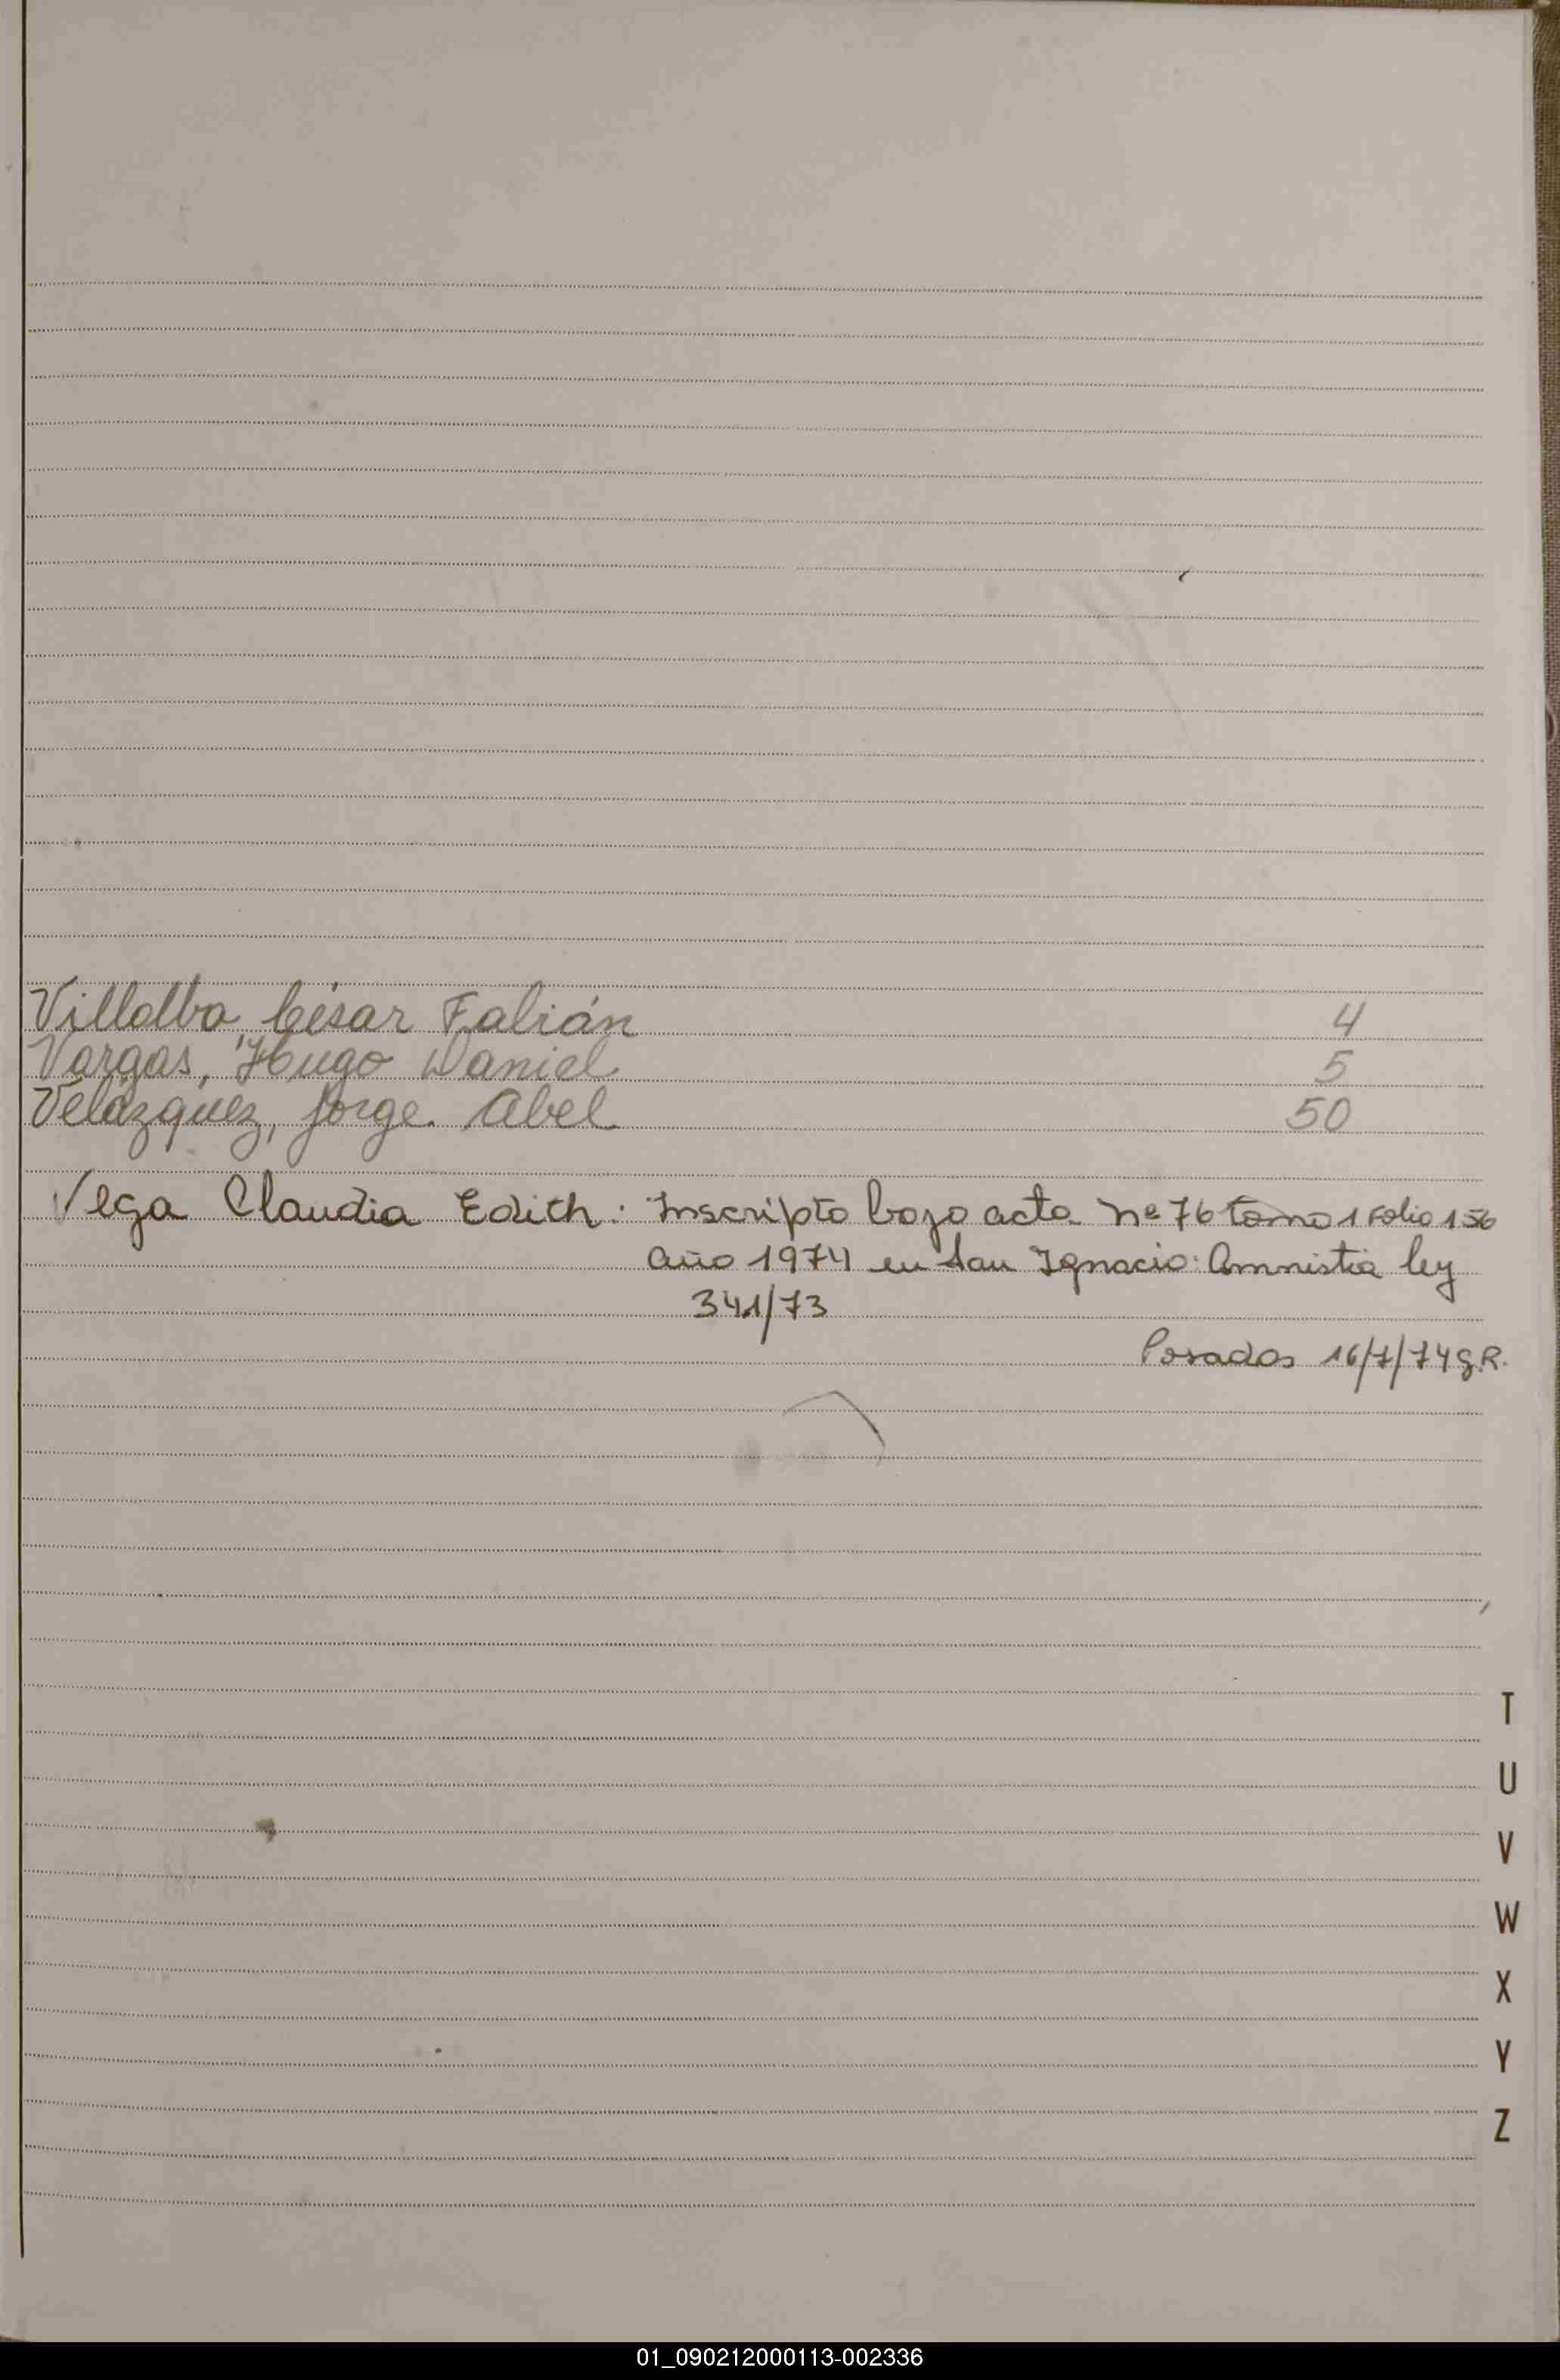 Villalba, César Falián 4
Vargas, Hugo Daniel 5
Velázquez, Jorge. Abel 50
Vega Claudia Edith: Inscripto bajo acta Nº 76 tomo 1 Folio 156
año 1974 en San Ignacio. Amnistia ley
341/73
Posadas 16/7/74 g.R.
T
U
V
W
X
Y
Z
01_090212000113-002336